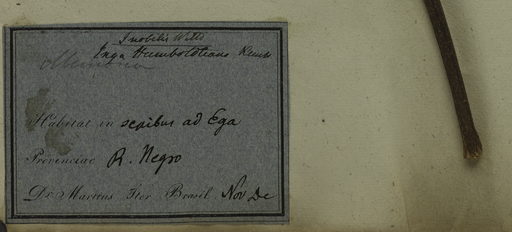 I nobilis Willd
Inga Humboldtiana Kunth
Habitat in sepibus ad Ega
Provinciae R. Negro
Dr. Martius Iter Brasil. Nov De